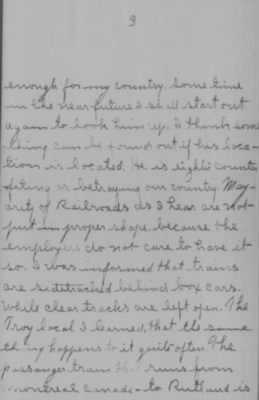 3
enough for my country. Some time
in the near future I shall start out
again to look him up. I think some
thing can be found out if his loca-
tion is located. He is eighter counter
feting or betraying our country. May-
arity of Railroads as I hear are not
put in proper shape. because the
employers do not care to have it
so. I was informed that trains
are sidetracked behind box cars.
while clear tracks are left open. The
Troy local I learned, that the same
thing happens to it quite often. The
passenger train that runs from
Montreal Canada to Rutland is